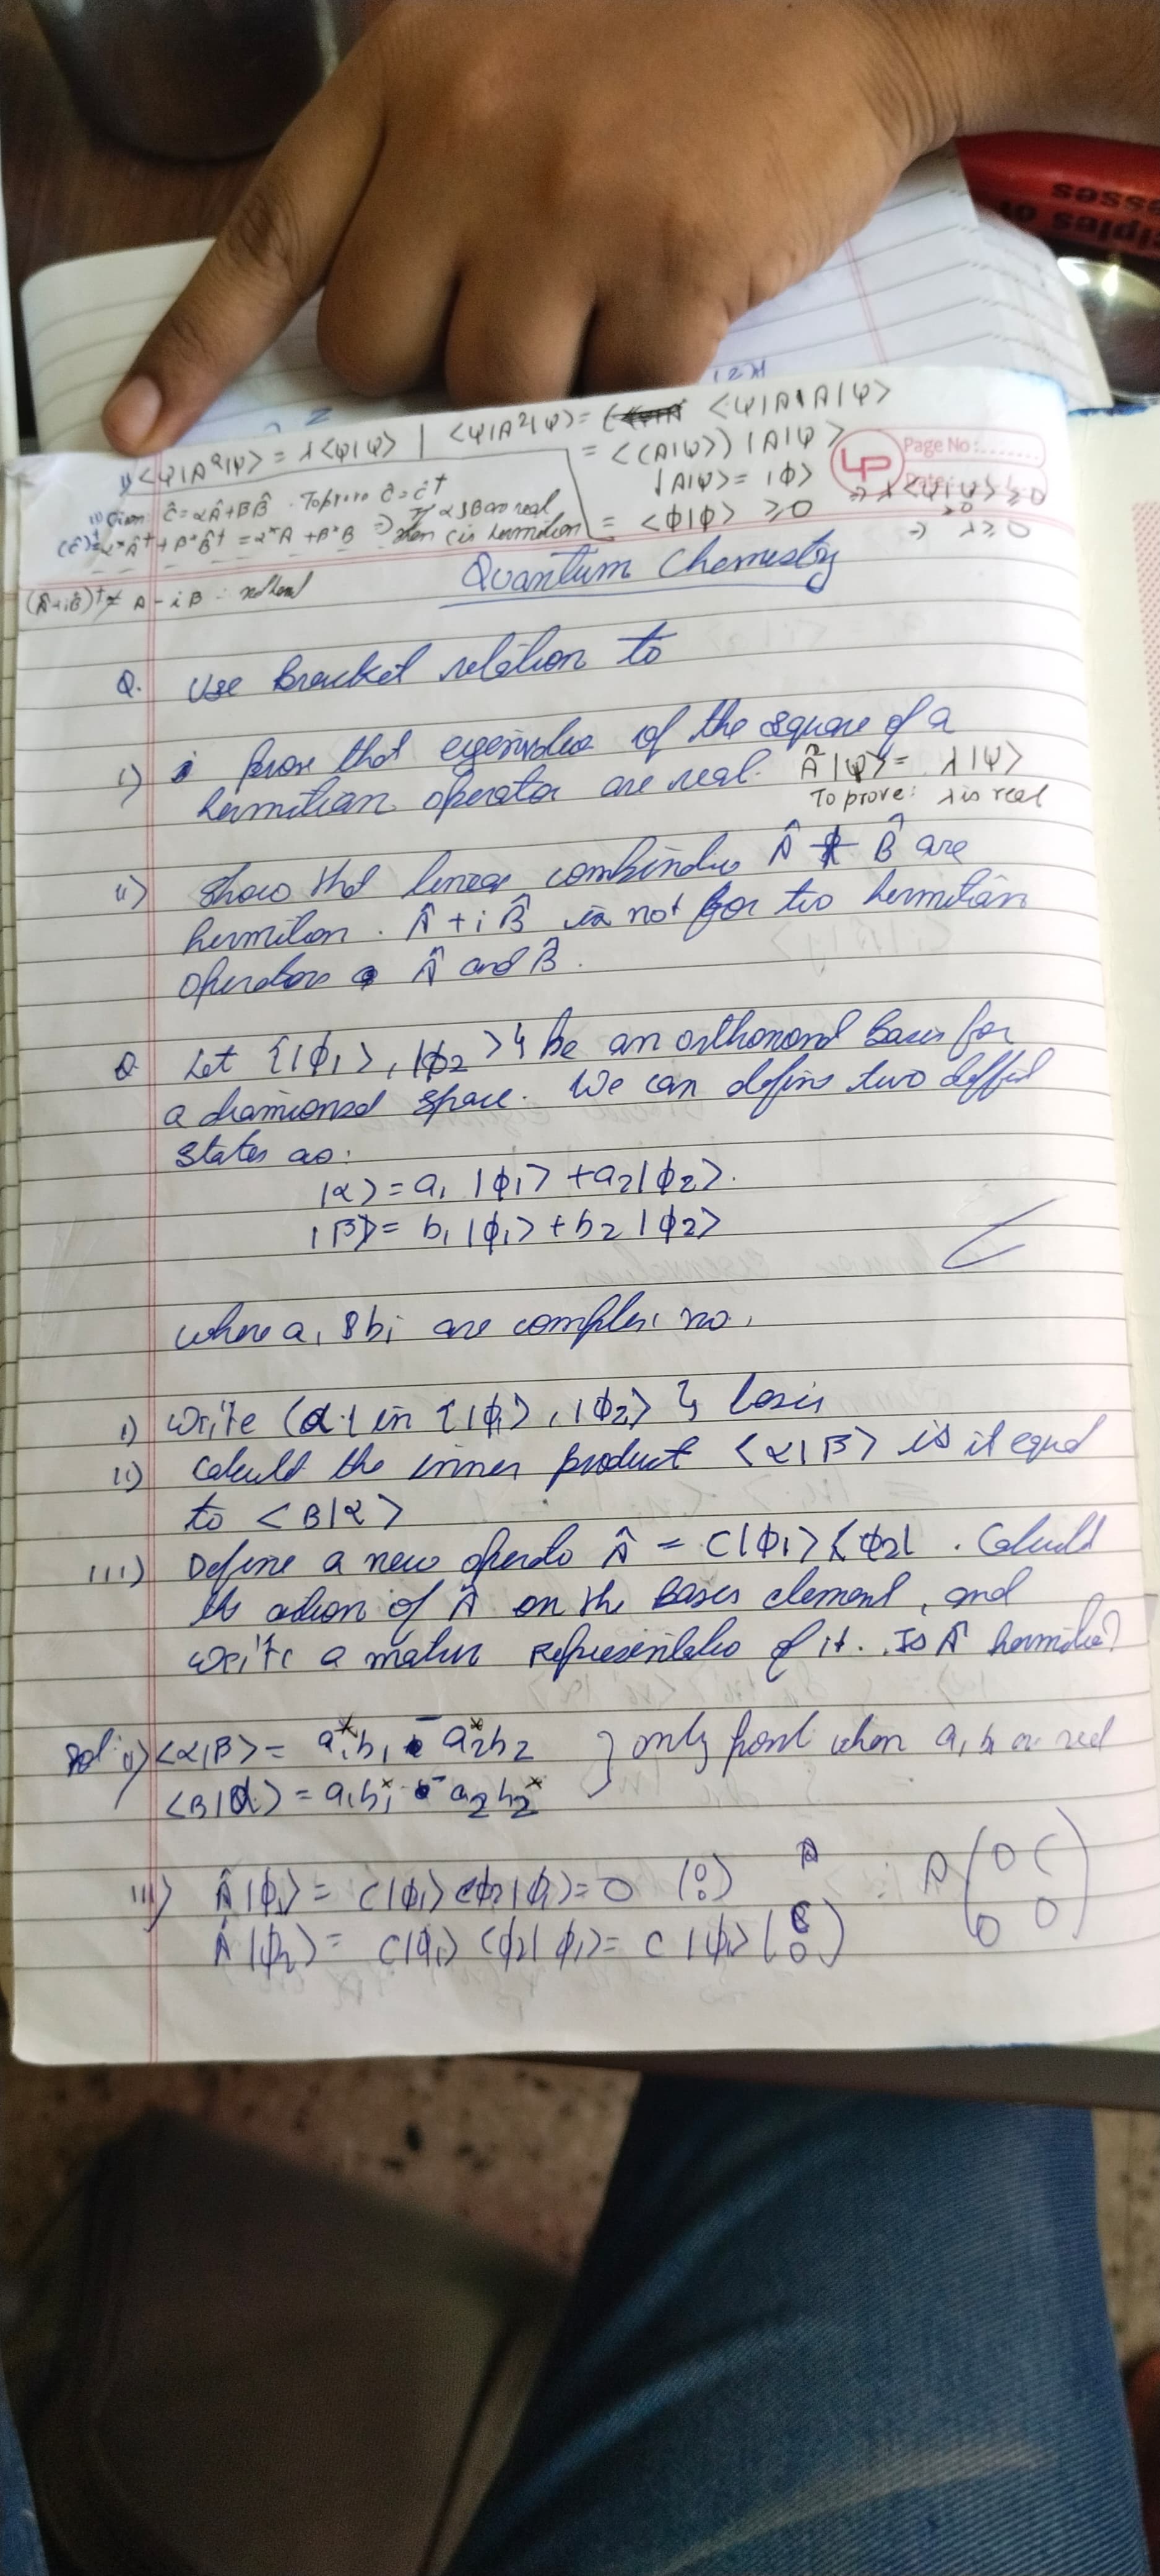 ciples of
esses
i) <ψ|A²|ψ> = λ<ψ|ψ> | <ψ|A²|ψ> = <ψ|A|A|ψ>
= <(A|ψ>) |A|ψ>
|A|ψ> = |ϕ>
= <ϕ|ϕ> ≥0
⇒ λ<ψ|ψ> ≥0
⇒ λ≥0
Page No :.......
LP
ii) Given: Ĉ = αÂ+βB̂ . To prove Ĉ = Ĉ†
(Ĉ)† = α*Â† + β*B̂† = α*A + β*B ⇒ If α & β are real then C is hermitian
(Â+iB̂)† ≠ A - iB
Quantum Chemestry
Q. Use Bracket relation to
i) Prove that eigenvalue of the square of a
hermitian operator are real. Â²|ψ> = λ|ψ>
To prove: λ is real
ii) Show that linear combinatio Â & B̂ are
hermition. Â + i B̂ is not for two hermitian
operators Â and B̂.
Q Let {|ϕ₁>, |ϕ₂>} be an orthonormal bases for
a diamensional space. We can define two
states as:
|α> = a₁ |ϕ₁> + a₂|ϕ₂>.
|β> = b₁ |ϕ₁> + b₂ |ϕ₂>
where aᵢ & bᵢ are complex no.
i) Write <α| in {|ϕ₁>, |ϕ₂>} basis
ii) Calcult the inner product <α|β> is it equal
to <β|α>
iii) Define a new operato Â = C|ϕ₁><ϕ₂| . Calcult
the action of Â on the bases element, and
write a matrix representatio of it. Is Â hermitia?
Sol: ii) <α|β> = a₁*b₁ - a₂*b₂ } only when a, b are real
<β|α> = a₁b₁* - a₂b₂*
iii) Â|ϕ₁> = C|ϕ₁> <ϕ₂|ϕ₁> = 0 (0 0)
Â|ϕ₂> = C|ϕ₁> <ϕ₂|ϕ₁> = C |ϕ₁> (C 0)
A (0 C
0 0)